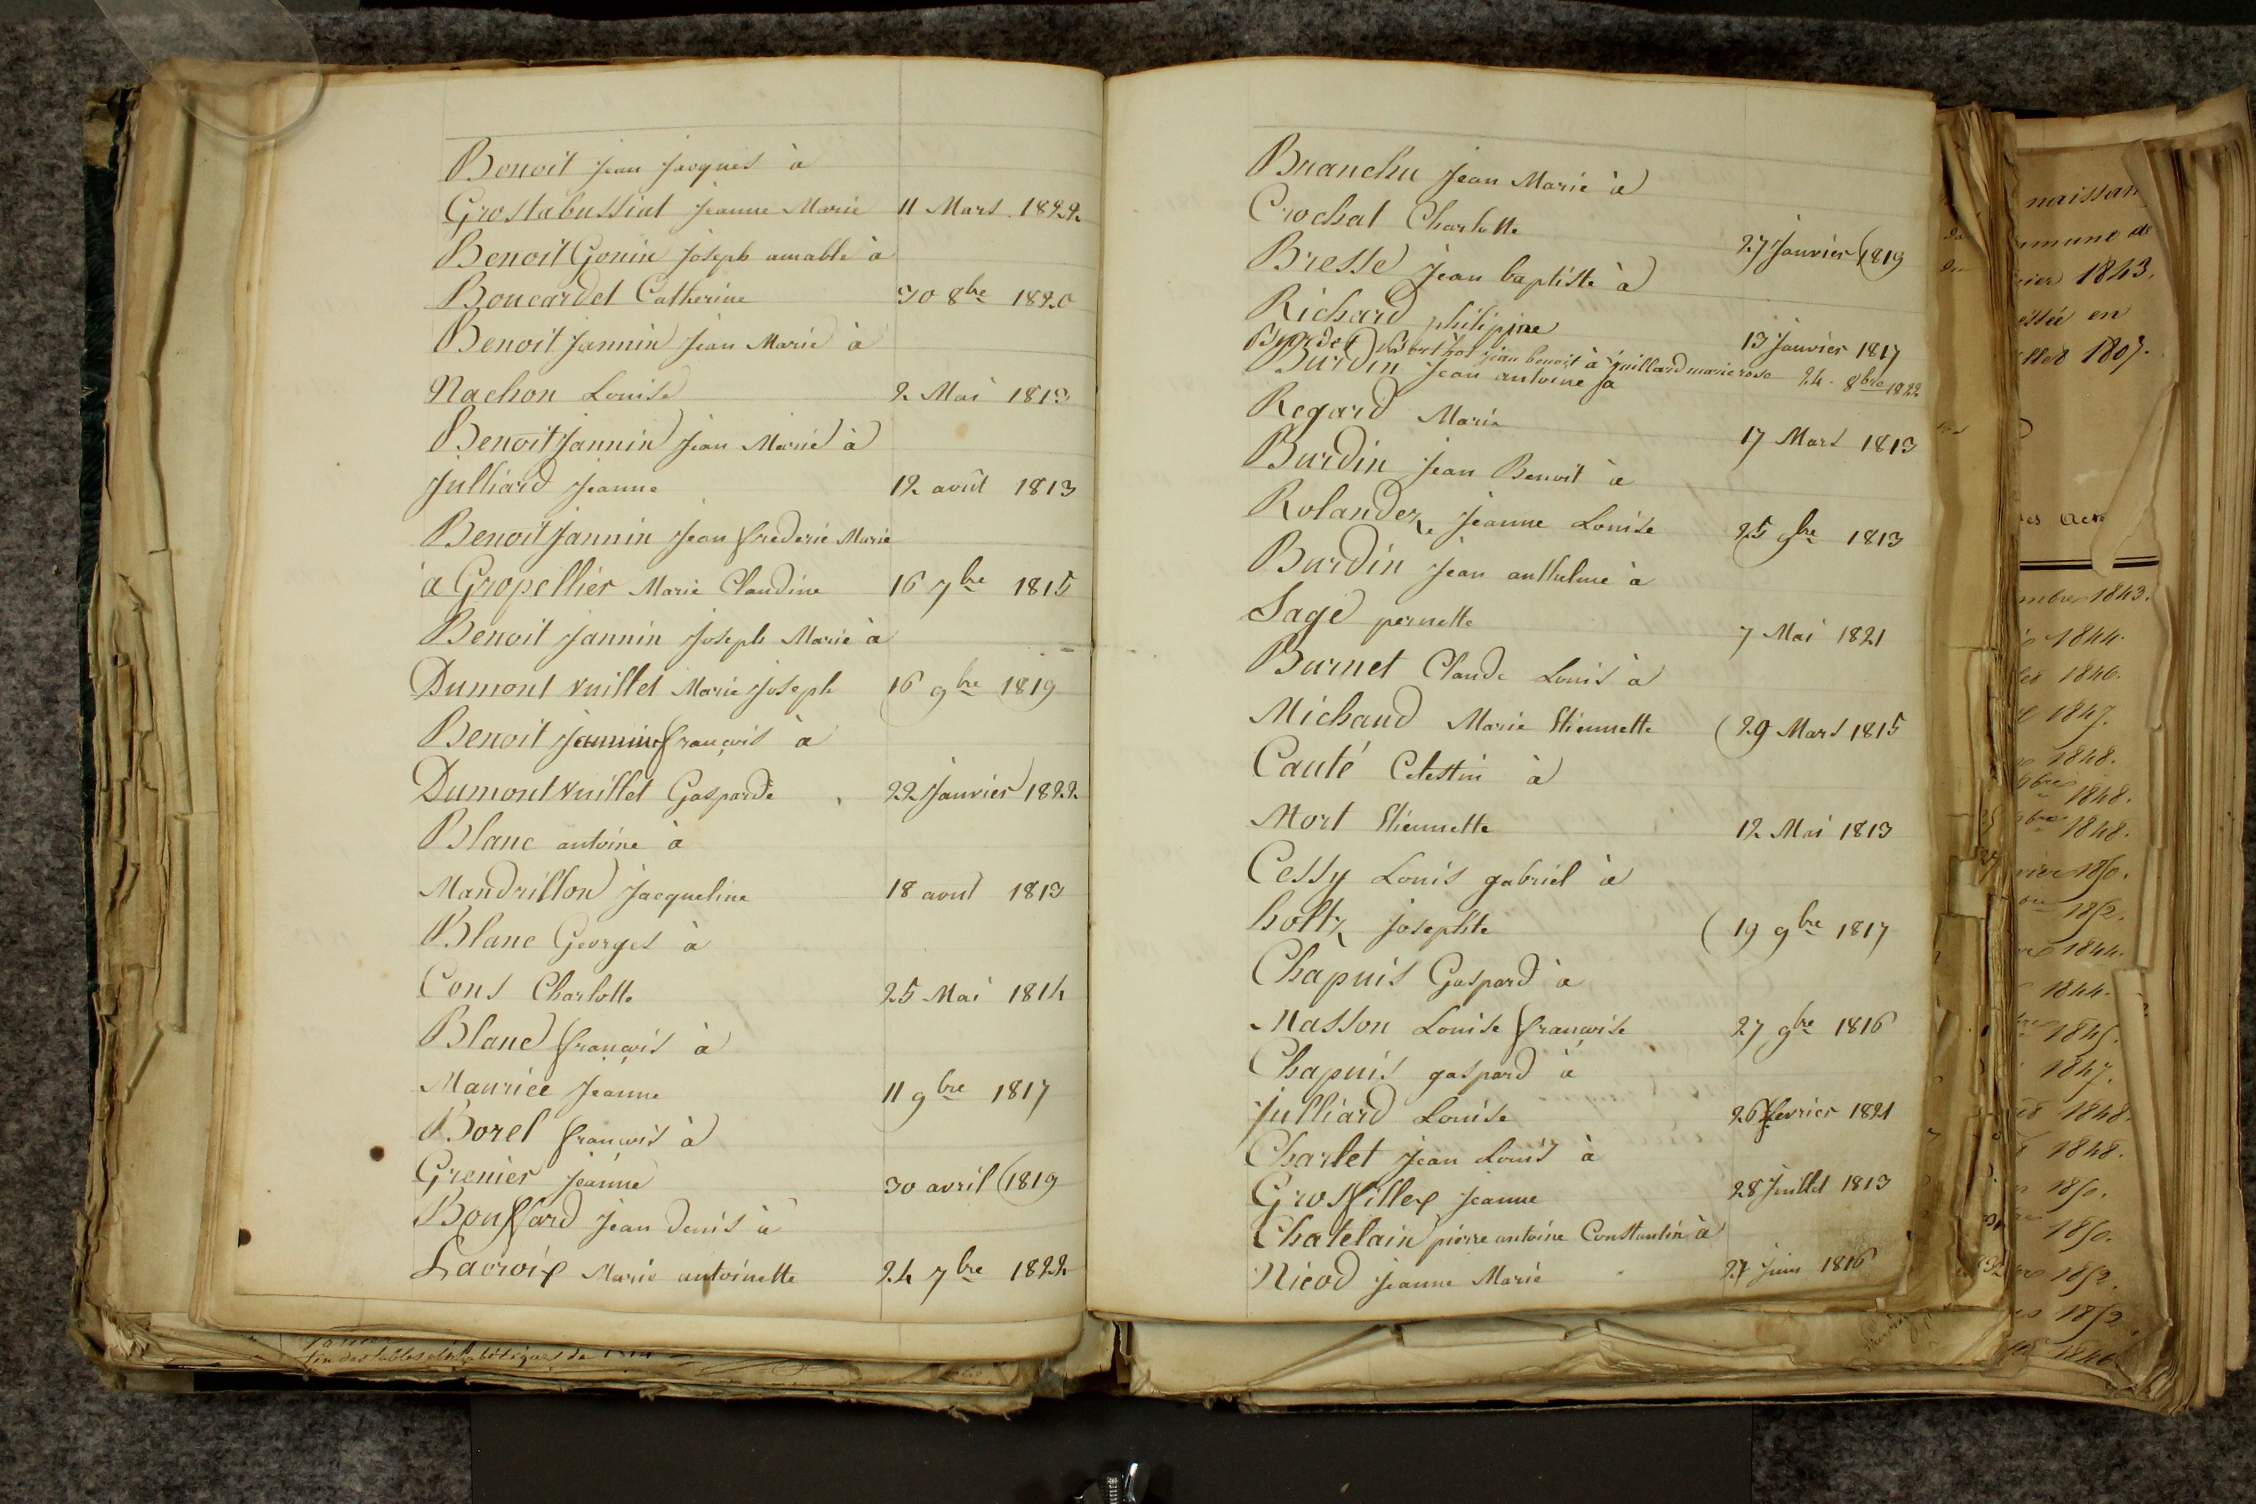 Benoit Jean Jacques à
Grostabussiat Jeanne Marie 11 Mars 1822
Benoit Gonin Joseph amable à
Boucardet Catherine 30 8bre 1820
Benoit Jannin Jean Marie à
Nachon Louise 2 Mai 1813
Benoit Jannin Jean Marie à
Julliard Jeanne 12 août 1813
Benoit Jannin Jean frederic Marie
à Gropellier Marie Claudine 16 7bre 1815
Benoit Jannin Joseph Marie à
Dumont vuillet Marie Joseph 16 9bre 1819
Benoit Jannin françois à
Dumont vuillet Gasparde 22 Janvier 1822
Blanc antoine à
Mandrillon Jacqueline 18 aout 1813
Blanc Georges à
Cons Charlotte 25 Mai 1814
Blanc françois à
Maurice Jeanne 11 9bre 1817
Borel françois à
Grenier Jeanne 30 avril 1819
Bouffard Jean Denis à
Lacroix Marie antoinette 24 7bre 1822
fin des tables alphabétiques de
Branchu Jean Marie à
Crochat Charlotte 27 Janvier 1819
Bresse Jean baptiste à
Richard philipine 13 Janvier 1817
Burdet jean benoit à juillard marie rose 24 8bre 1822
Burdin Jean antoine à
Regard Marie 17 Mars 1813
Burdin Jean Benoit à
Rolandez Jeanne Louise 25 9bre 1813
Burdin Jean anthelme à
Sage pernette 7 Mai 1821
Burnet Claude Louis à
Michaud Marie Etiennette 29 Mars 1815
Cauté Celestin à
Mort Etiennette 12 Mai 1813
Cessy Louis gabriel à
holtz Josephte 19 9bre 1817
Chapuis Gaspard à
Masson Louise françoise 27 9bre 1816
Chapuis gaspard à
Julliard Louise 26 fevrier 1821
Charlet Jean Louis à
Grosfillex Jeanne 28 Juillet 1813
Chatelain pierre antoine Constantin à
Nicod Jeanne Marie 27 Juin 1816
naissan
mmune de
1843.
en
1807.
1843.
1844.
1846.
1847.
1848.
1848.
1848.
1850.
1852.
1844.
1844.
1845.
1847.
1848.
1848.
1850.
1850.
1852.
1852.